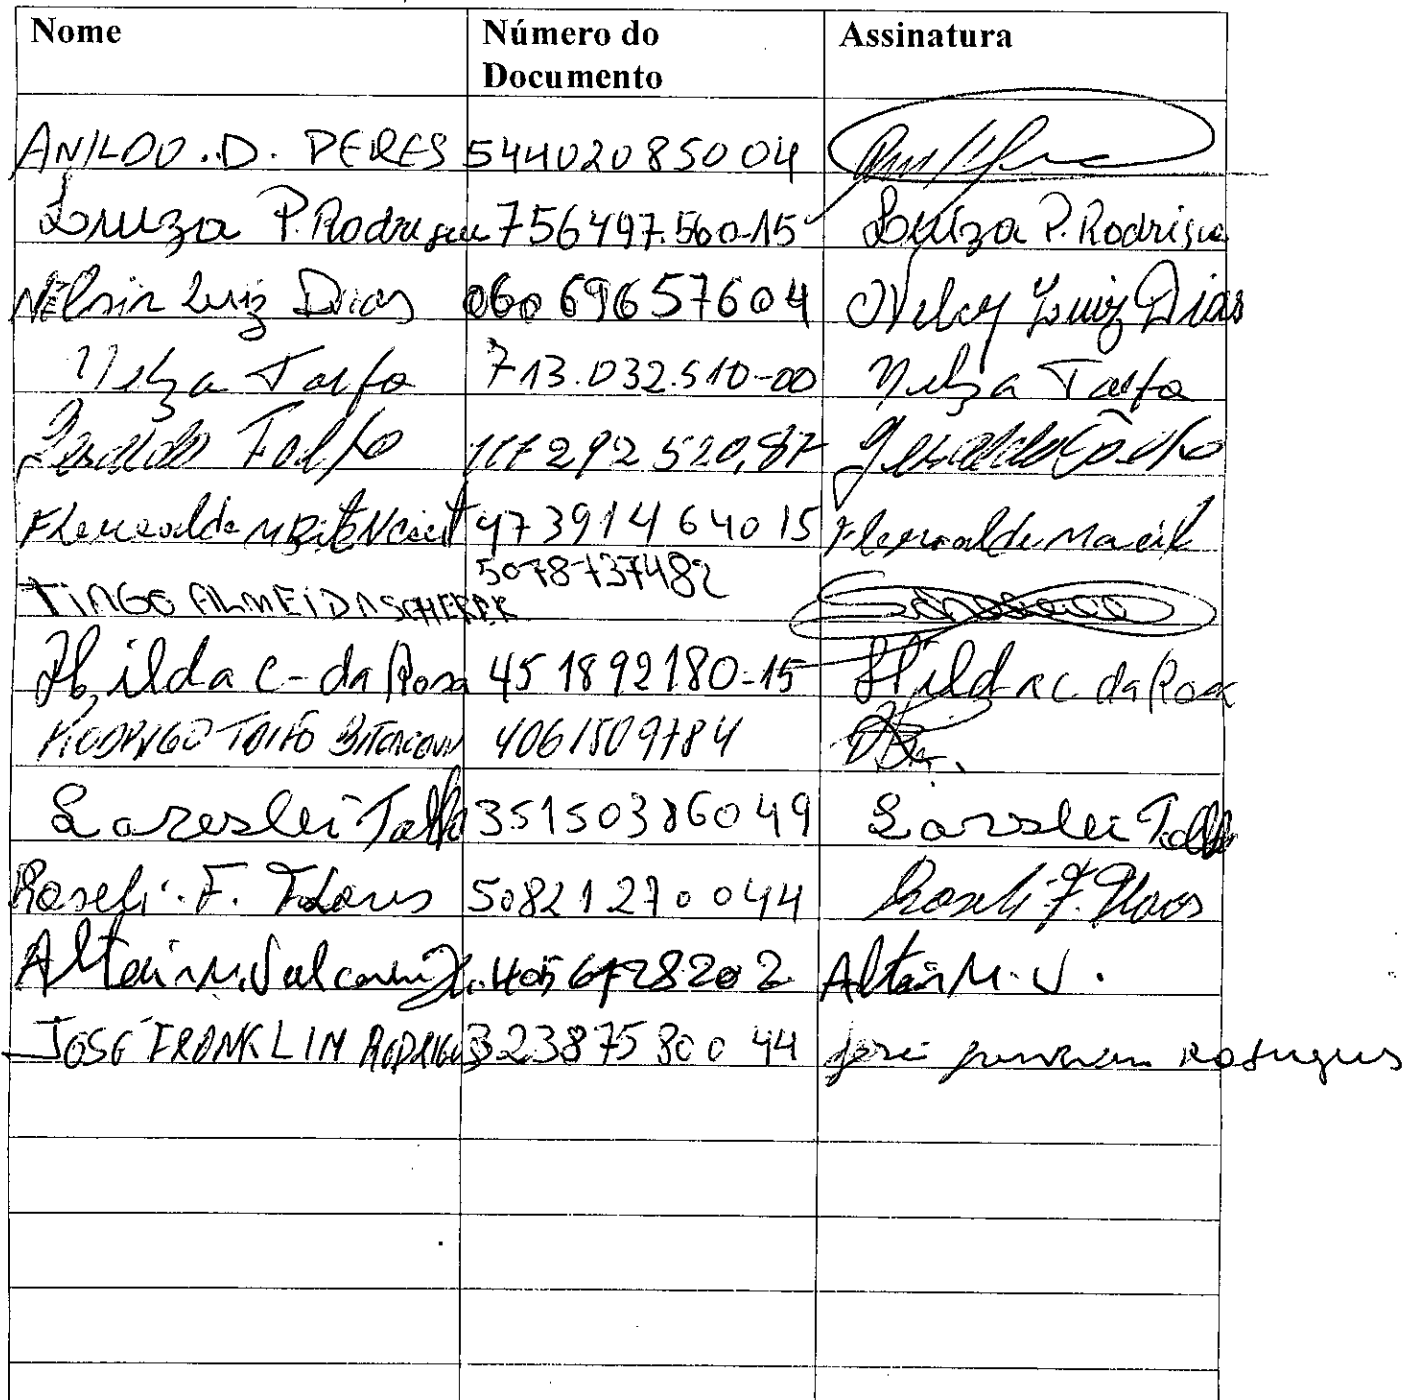 Nome Número do Documento Assinatura
ANILDO. D. PERES 54402085004
Luiza P. Rodrigues 756497.560-15 Luiza P. Rodrigues
Nelsin Luiz Dias 06069657604 Nelcy Luiz Dias
Nelza Tolfo 713.032.510-00 Nelza Tolfo
Geraldo Tolfo 292 520,87 Geraldo
47391464015
TIAGO ALMEIDA SCHERER 5078737482
Hilda C - da Rosa 451892180-15 Hilda C. da Rosa
RODRIGO TOLFO BITENCOUR 4061509784
Lareslei Tolfo 35150386049 Lareslei Tolfo
Roseli. F. 50821270044 Roseli F.
Altair M. Altair M. V.
JOSÉ FRANKLIN RODRIGUES 32387580044 José Rodrigues